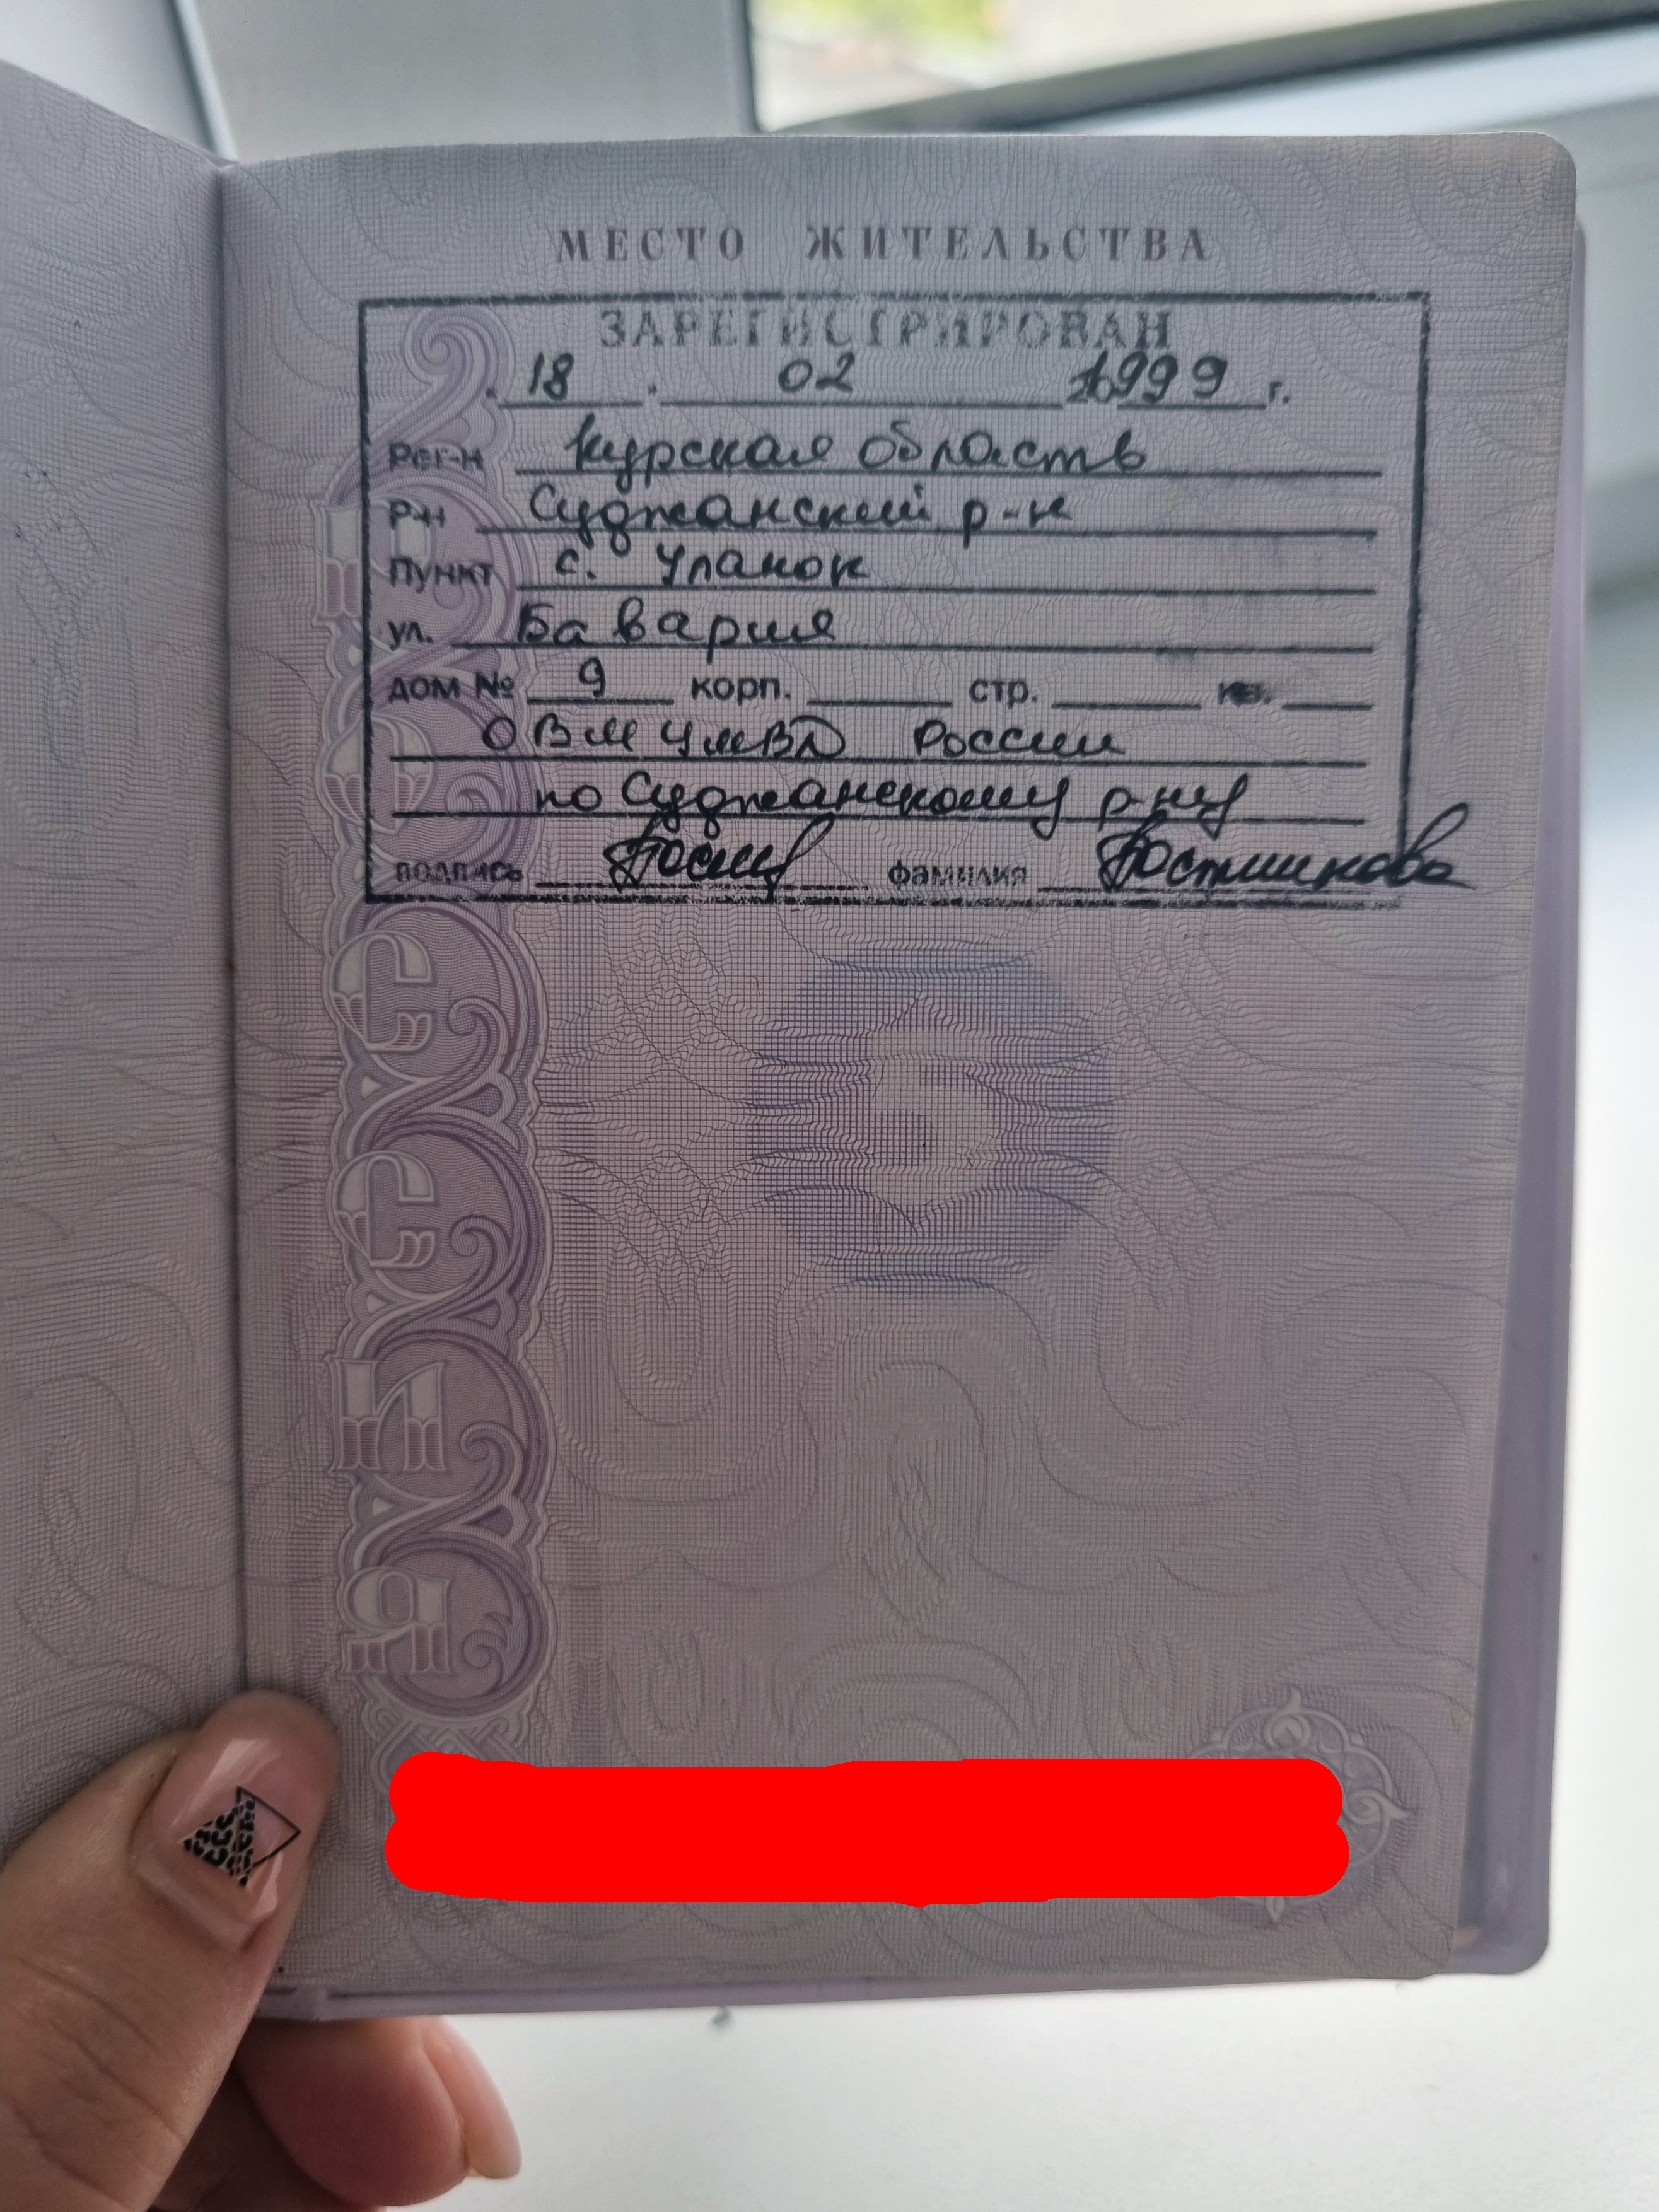 МЕСТО ЖИТЕЛЬСТВА
ЗАРЕГИСТРИРОВАН
18 . 02 1999 г.
Рег-н Курская область
Р-н Суджанский р-н
Пункт с. Уланок
ул. Бавария
дом № 9 корп. стр. кв.
ОВМ УМВД России
по Суджанскому р-ну
подпись фамилия Постникова
РОССИЯ
5